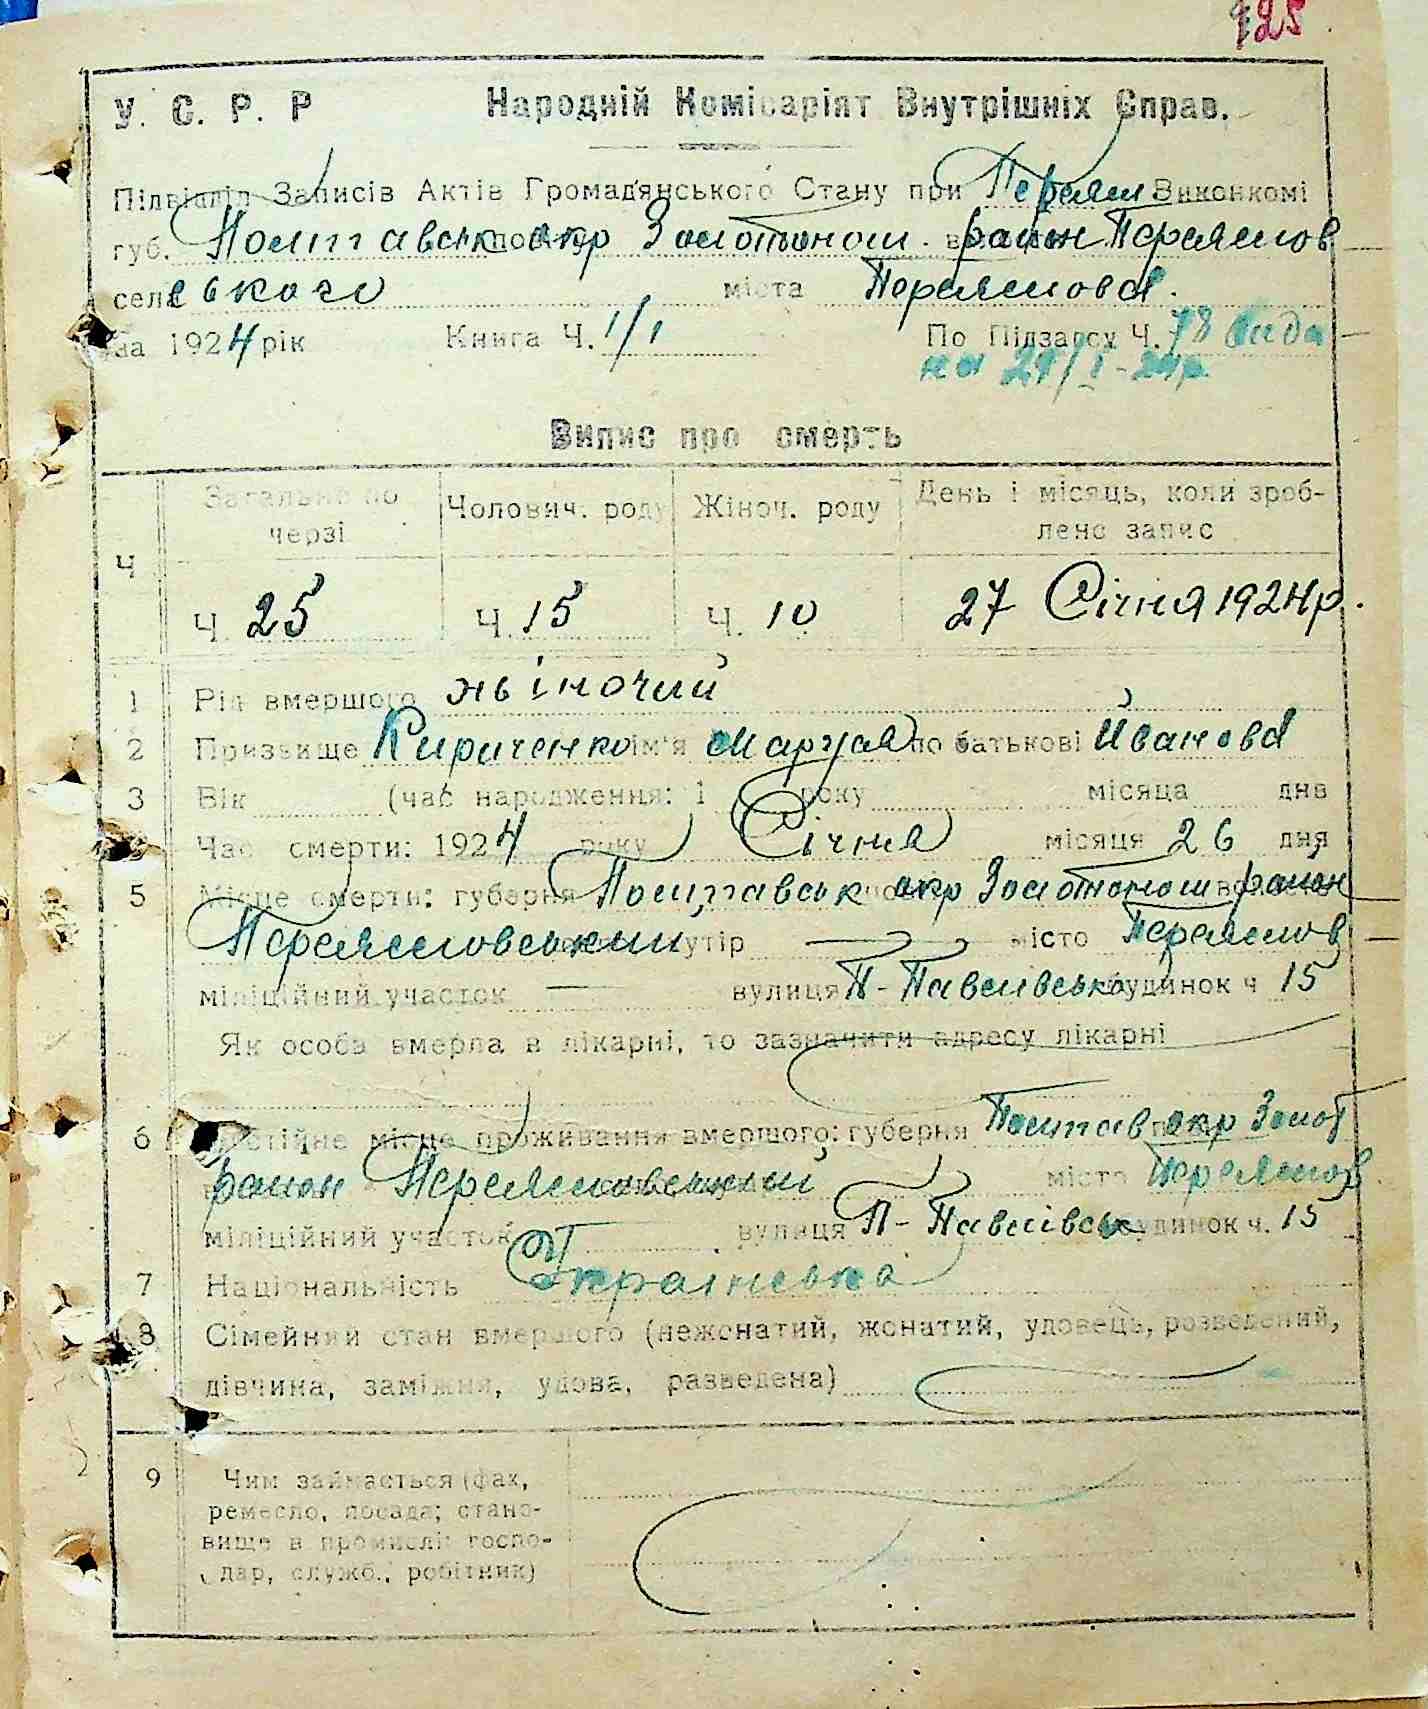 125
У. С. Р. Р Народній Комісаріят Внутрішніх Справ.
Підвідділ Записів Актів Громадянського Стану при Переясл Виконкомі
губ. Полтавськ окр Золотонош. район Переяслов
села ського міста Переяслова.
за 1924 рік Книга Ч. 1/1 По Підзагсу Ч. 78
на
Випис про смерть
Ч Загально по черзі Чолович. роду Жіноч. роду День і місяць, коли зроблено запис
Ч. 25 Ч. 15 Ч. 10 27 Січня 1924 р.
1 Рід вмершого жіночий
2 Призвище Кириченко ім'я Марія по батькові Йванова
3 Вік (час народження: 1 року місяца дня
Час смерти: 1924 року Січня місяця 26 дня
5 Місце смерти: губерня Полтавськ окр Золотонош район
Переяславський хутір місто Переяслов
міліційний участок вулиця П-Павлівська будинок ч 15
Як особа вмерла в лікарні, то зазначити адресу лікарні
6 Постійне місце проживання вмершого: губерня Полтав окр Золот
район Переяславський місто Переяслов
міліційний участок вулиця П-Павлівськ будинок ч. 15
7 Національність Українська
8 Сімейний стан вмершого (нежонатий, жонатий, удовець, розведений,
дівчина, заміжня, удова, разведена)
9 Чим займається (фах,
ремесло, посада; стано-
вище в промислі: госпо-
дар, служб., робітник)